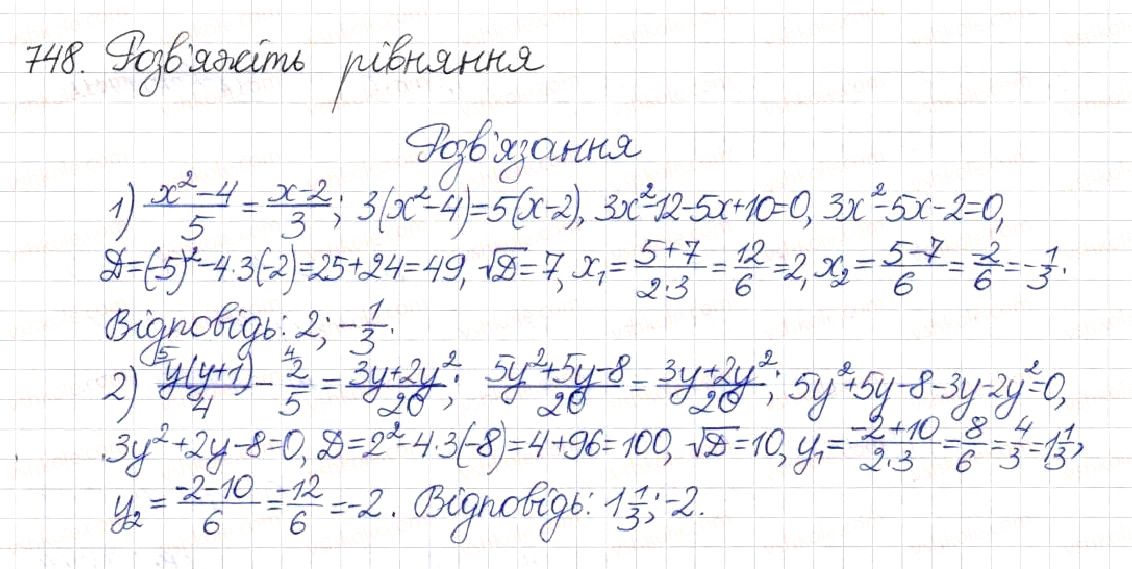 748. Розв'яжіть рівняння
Розв'язання
1) (x²-4)/5 = (x-2)/3; 3(x²-4)=5(x-2), 3x²-12-5x+10=0, 3x²-5x-2=0,
D=(-5)²-4·3(-2)=25+24=49, √D=7, x₁=(5+7)/(2·3)=12/6=2, x₂=(5-7)/6=-2/6=-1/3.
Відповідь: 2; -1/3.
2) ⁵⁾y(y+1)/4 - ⁴⁾2/5 = (3y+2y²)/20; (5y²+5y-8)/20 = (3y+2y²)/20; 5y²+5y-8-3y-2y²=0,
3y²+2y-8=0, D=2²-4·3(-8)=4+96=100, √D=10, y₁=(-2+10)/(2·3)=8/6=4/3=1 1/3,
y₂=(-2-10)/6=-12/6=-2. Відповідь: 1 1/3; -2.